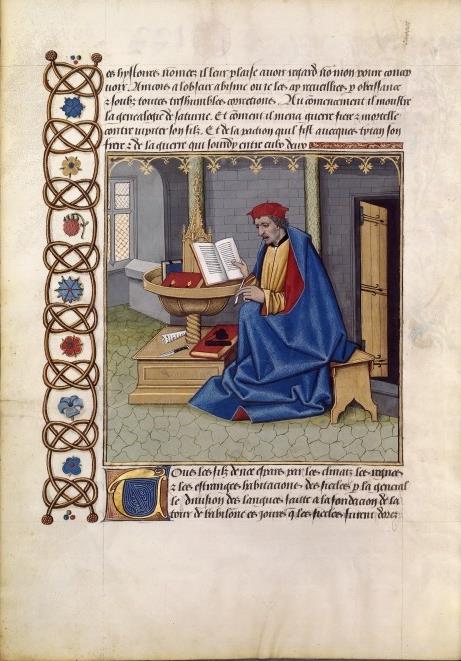 hystoires nomer il leur plaise auoir regard no mon poure concep
uoir. a lobscur abisme ou ie les ay recueillies p obeissance
soubz toutes treshumbles corrections. Au cōmencement il monstre
la genealogie de saturne. Et cōment il mena guerre fiere z mortelle
contre iupiter son filz. Et de la paction quil fist auecques tytan son
frere z de la guerre qui sourdy entre eulx deux
Tous les filz de noe espars par les climatz les regnes
z les estranges habitacions des siecles p la general
le diuision des langues faitte a la fondacion de la
tour de babilōne es iours q̄ les siecles furent dorez